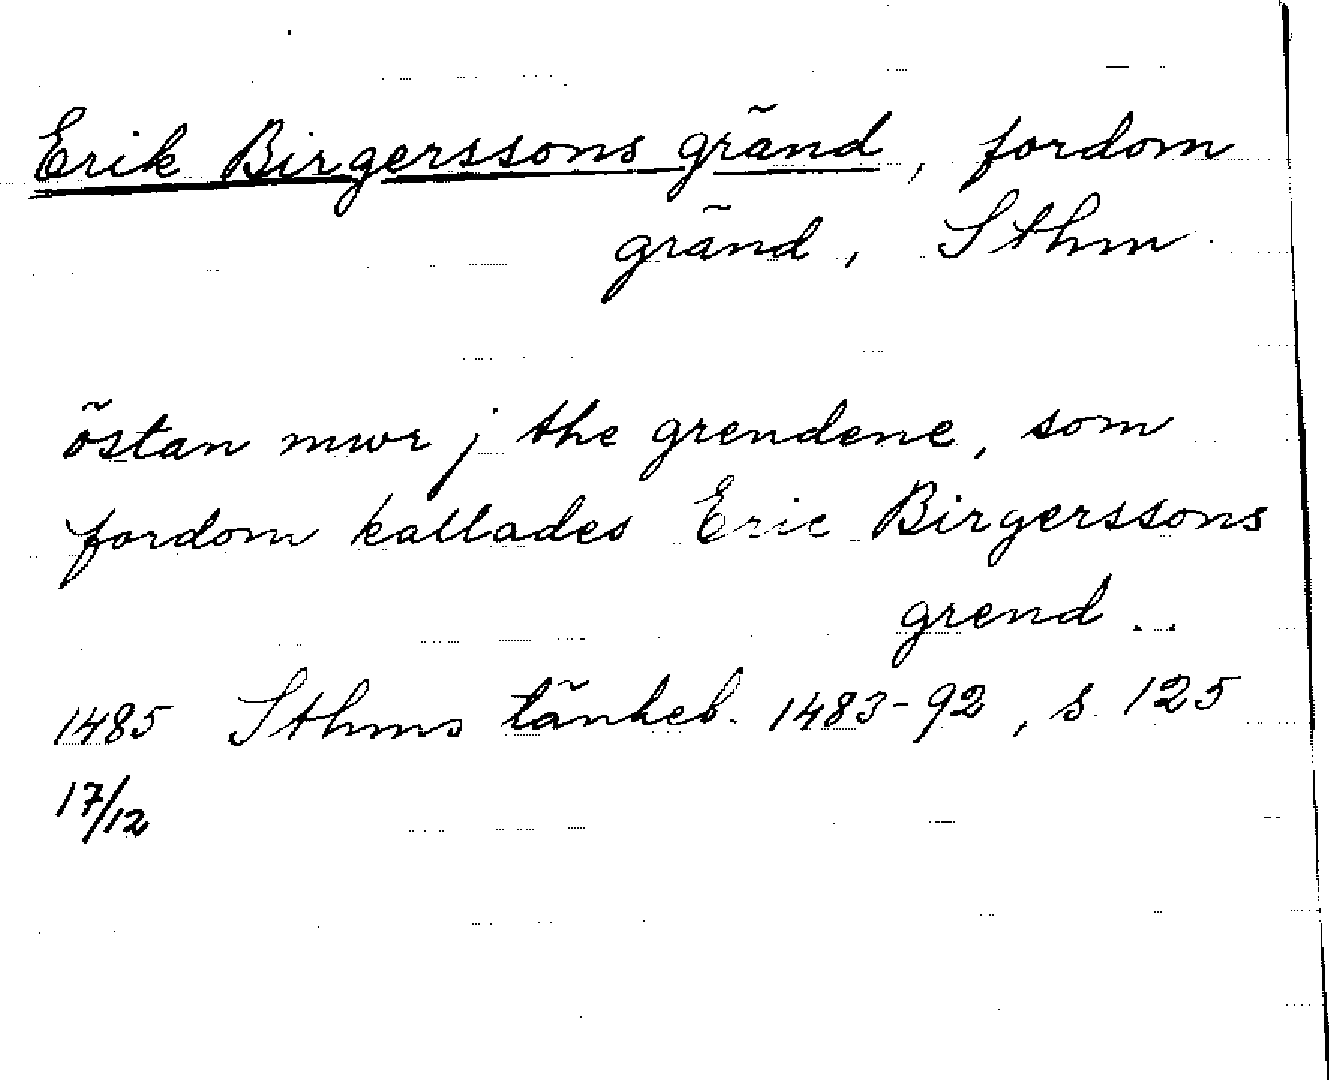 Erik Birgerssons gränd, fordom
gränd, Sthm.
östan mwr j the grendene, som
fordom kallades Eric Birgerssons
grend...
1485 Sthms tänkeb. 1483-92, s. 125
17/12